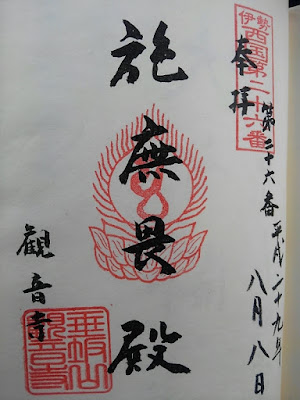 伊勢
西国第二十六番
奉拝
第二十六番
平成二十九年
八月八日
施無畏殿
観音寺